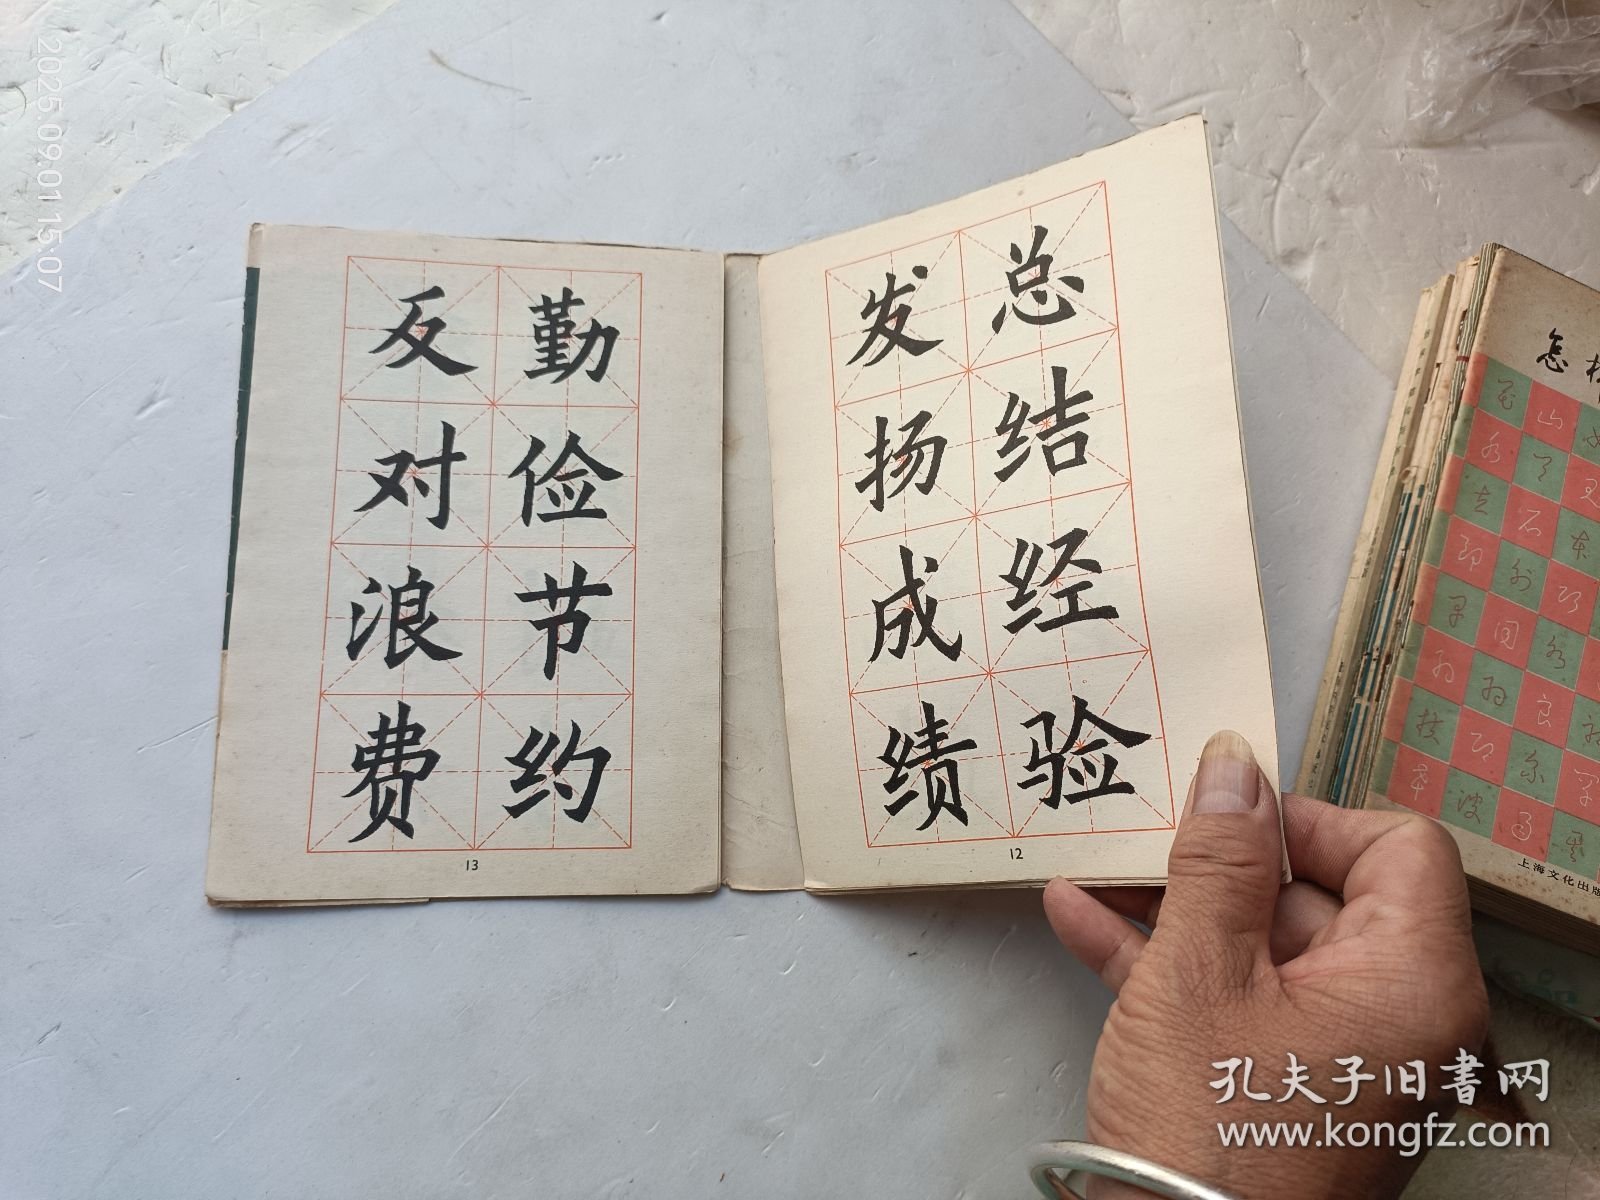 2025.09.01 15:07
总结经验
发扬成绩
12
勤俭节约
反对浪费
13
怎
上海文化出版
孔夫子旧书网
www.kongfz.com